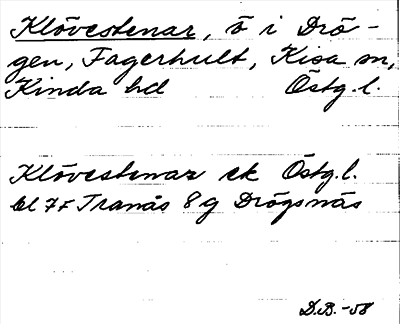 Klövestenar, ö i Drö-
gen, Fagerhult, Kisa sn,
Kinda hd Östg.l.
Klövestenar ek Östg.l.
bl 7F Tranås 8g Drögsnäs
D.B.-58